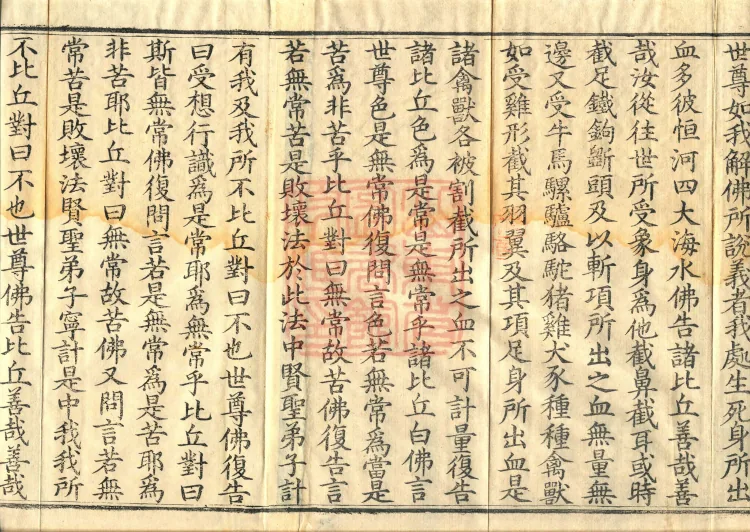 世尊如我解佛所說義者我處生死身所出
血多彼恒河四大海水佛告諸比丘善哉善
哉汝從往世所受象身爲他截鼻截耳或時
截足鐵鉤斵頭及以斬項所出之血無量無
邊又受牛馬騾驢駱駝猪雞犬豕種種禽獸
如受雞形截其羽翼及其項足身所出血是
諸禽獸各被割截所出之血不可計量復告
諸比丘色爲是常是無常乎諸比丘白佛言
世尊色是無常佛復問言色若無常爲當是
苦爲非苦乎比丘對曰無常故苦佛復告言
若無常苦是敗壞法於此法中賢聖弟子計
有我及我所不比丘對曰不也世尊佛復告
曰受想行識爲是常耶爲無常乎比丘對曰
斯皆無常佛復問言若是無常爲是苦耶爲
非苦耶比丘對曰無常故苦佛又問言若無
常苦是敗壞法賢聖弟子寧計是中我我所
不比丘對曰不也世尊佛告比丘善哉善哉